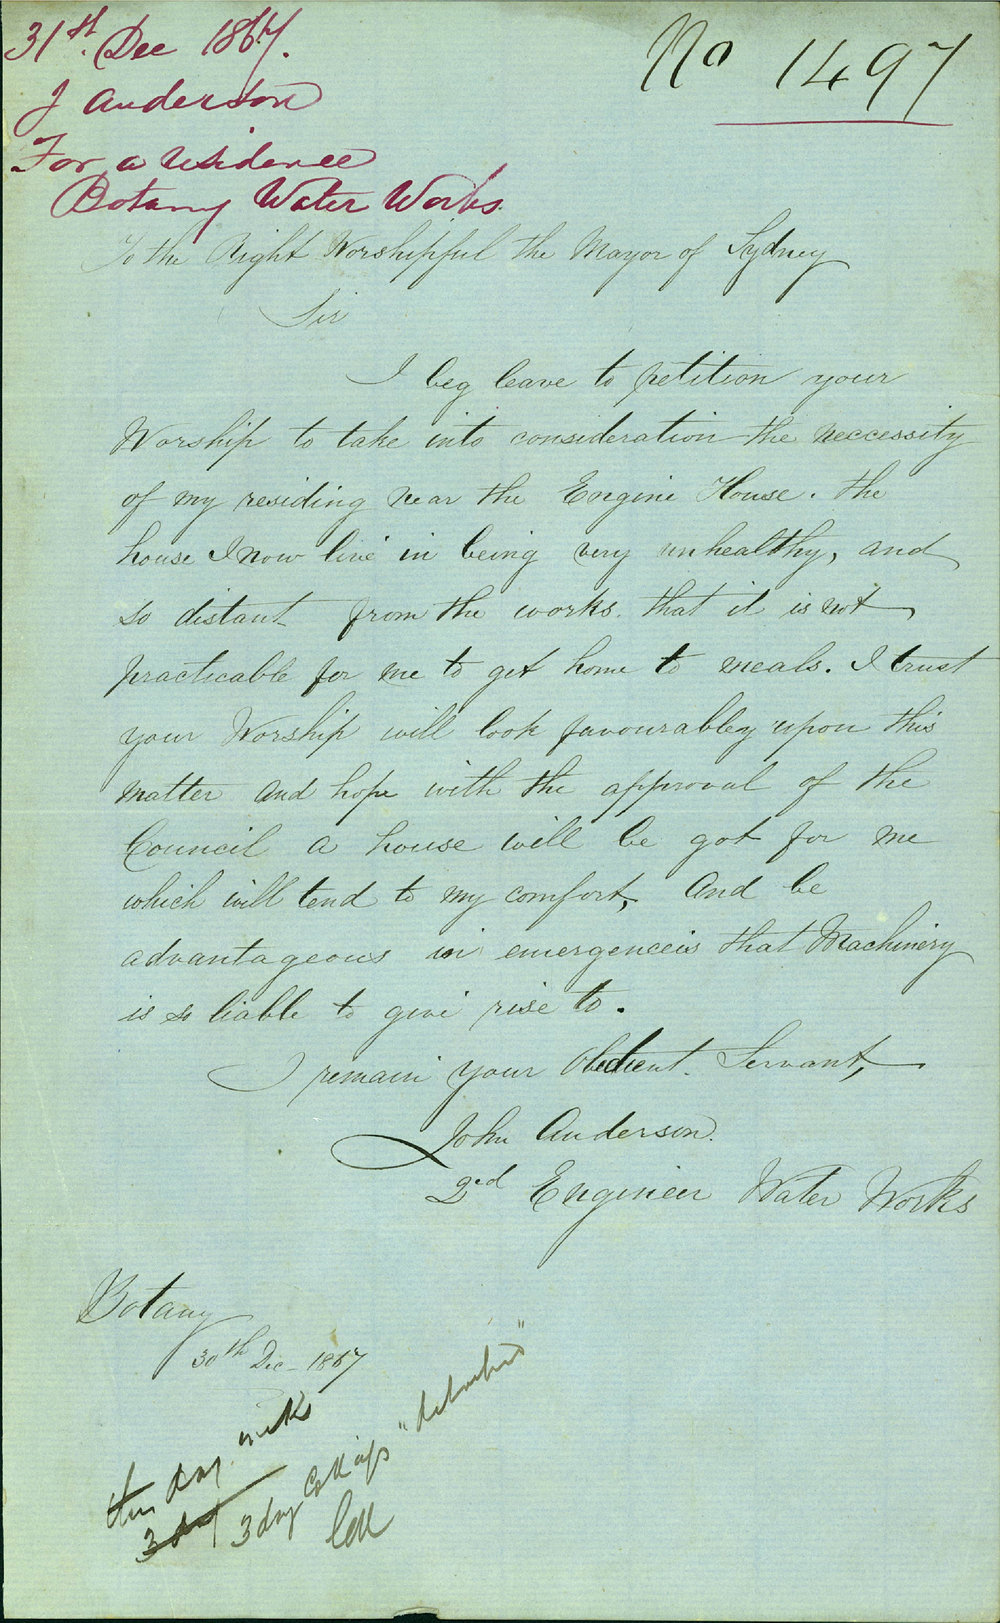 31st. Dec 1867.
J Anderson
For a residence
Botany Water Works.
No 1497
To the Right Worshipful the Mayor of Sydney
Sir
I beg leave to petition your
Worship to take into consideration the neccessity
of my residing near the Engine House. the
house I now live in being very unhealthy, and
so distant from the works. that it is not
practicable for me to get home to meals. I trust
your Worship will look favourabley upon this
matter and hope with the approval of the
Council a house will be got for me
which will tend to my comfort, And be
advantageous in emergenceis that Machinery
is so liable to give rise to.
I remain your Obedient. Servant,
John Anderson.
2nd Engineer Water Works
Botany
30th Dec - 1867
this day weeks
3 day